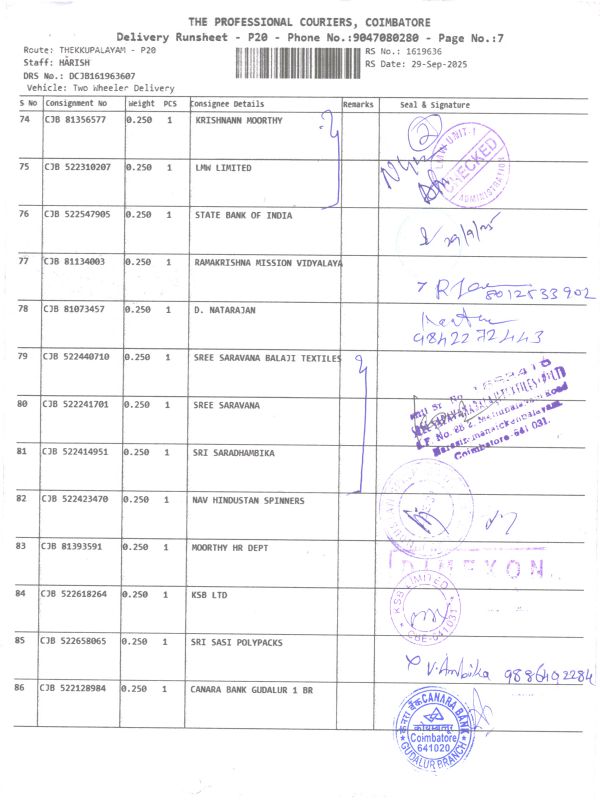 THE PROFESSIONAL COURIERS, COIMBATORE
Delivery Runsheet - P20 - Phone No.:9047080280 - Page No.:7
Route: THEKKUPALAYAM - P20
RS No.: 1619636
Staff: HARISH
RS Date: 29-Sep-2025
DRS No.: DCJB161963607
Vehicle: Two Wheeler Delivery
S No Consignment No Weight PCS Consignee Details Remarks Seal & Signature
74 CJB 81356577 0.250 1 KRISHNANN MOORTHY
2
LMW UNIT-1
CHECKED
ADMINISTRATION
75 CJB 522310207 0.250 1 LMW LIMITED
76 CJB 522547905 0.250 1 STATE BANK OF INDIA
77 CJB 81134003 0.250 1 RAMAKRISHNA MISSION VIDYALAYA
8012533902
78 CJB 81073457 0.250 1 D. NATARAJAN
9842272443
79 CJB 522440710 0.250 1 SREE SARAVANA BALAJI TEXTILES
80 CJB 522241701 0.250 1 SREE SARAVANA
Coimbatore-641 031.
81 CJB 522414951 0.250 1 SRI SARADHAMBIKA
82 CJB 522423470 0.250 1 NAV HINDUSTAN SPINNERS
83 CJB 81393591 0.250 1 MOORTHY HR DEPT
84 CJB 522618264 0.250 1 KSB LTD
KSB LIMITED
CBE-641031
85 CJB 522658065 0.250 1 SRI SASI POLYPACKS
V. Ambika 9886492284
86 CJB 522128984 0.250 1 CANARA BANK GUDALUR 1 BR
केनरा बैंक CANARA BANK
कोयम्बत्तूर
Coimbatore
641020
GUDALUR BRANCH